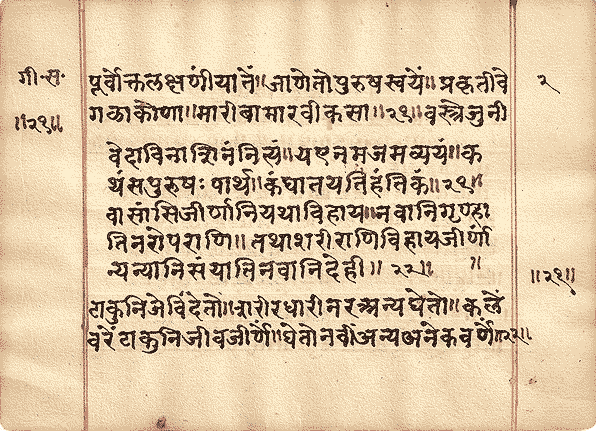 गी॰स॰
पूर्वोक्तलक्षणींयातें॥जाणेतोपुरुषस्वयें॥प्रकृतीवे
२
गळाकोणा॥मारीवामारवीकसा॥२१॥वस्त्रेंजुनी
॥२१॥
वेदाविनाशिनंनित्यं॥यएनमजमव्ययं॥क
थंसपुरुषः पार्थ॥कंघातयतिहंतिकं॥२१॥
वासांसिजीर्णानियथाविहाय॥नवानिगृण्हा
तिनरोपराणि॥तथाशरीराणिविहायजीर्णा
न्यन्यानिसंयातिनवानिदेही॥२२॥ ॥
॥२१॥
टाकुनिजेविंदेतो॥शरीरधारीनरअन्यघेतो॥कलें
वरेंटाकुनिजीवजीर्णें॥घेतोनवींअन्यअनेकवर्णें॥२२॥